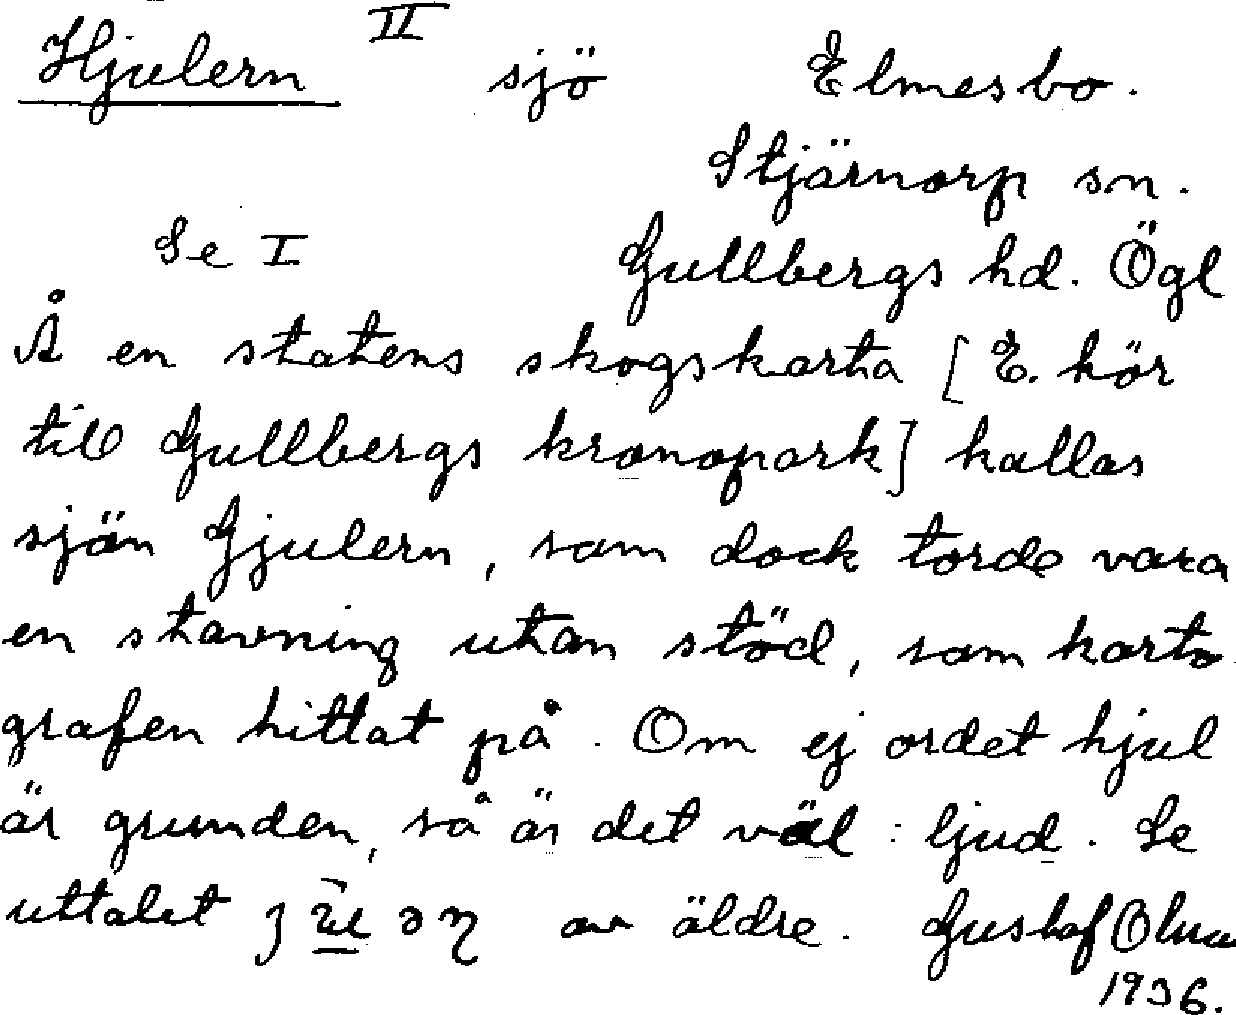 Hjulern II sjö Elmesbo.
Stjärnorp sn.
Se I Gullbergs hd. Ögl
Å en statens skogskarta [E. hör
till Gullbergs kronopark] kallas
sjön Gjulern, som dock torde vara
en stavning utan stöd, som karto
grafen hittat på. Om ej ordet hjul
är grunden, så är det väl: ljud. Se
uttalet av äldre. Gustaf
1936.